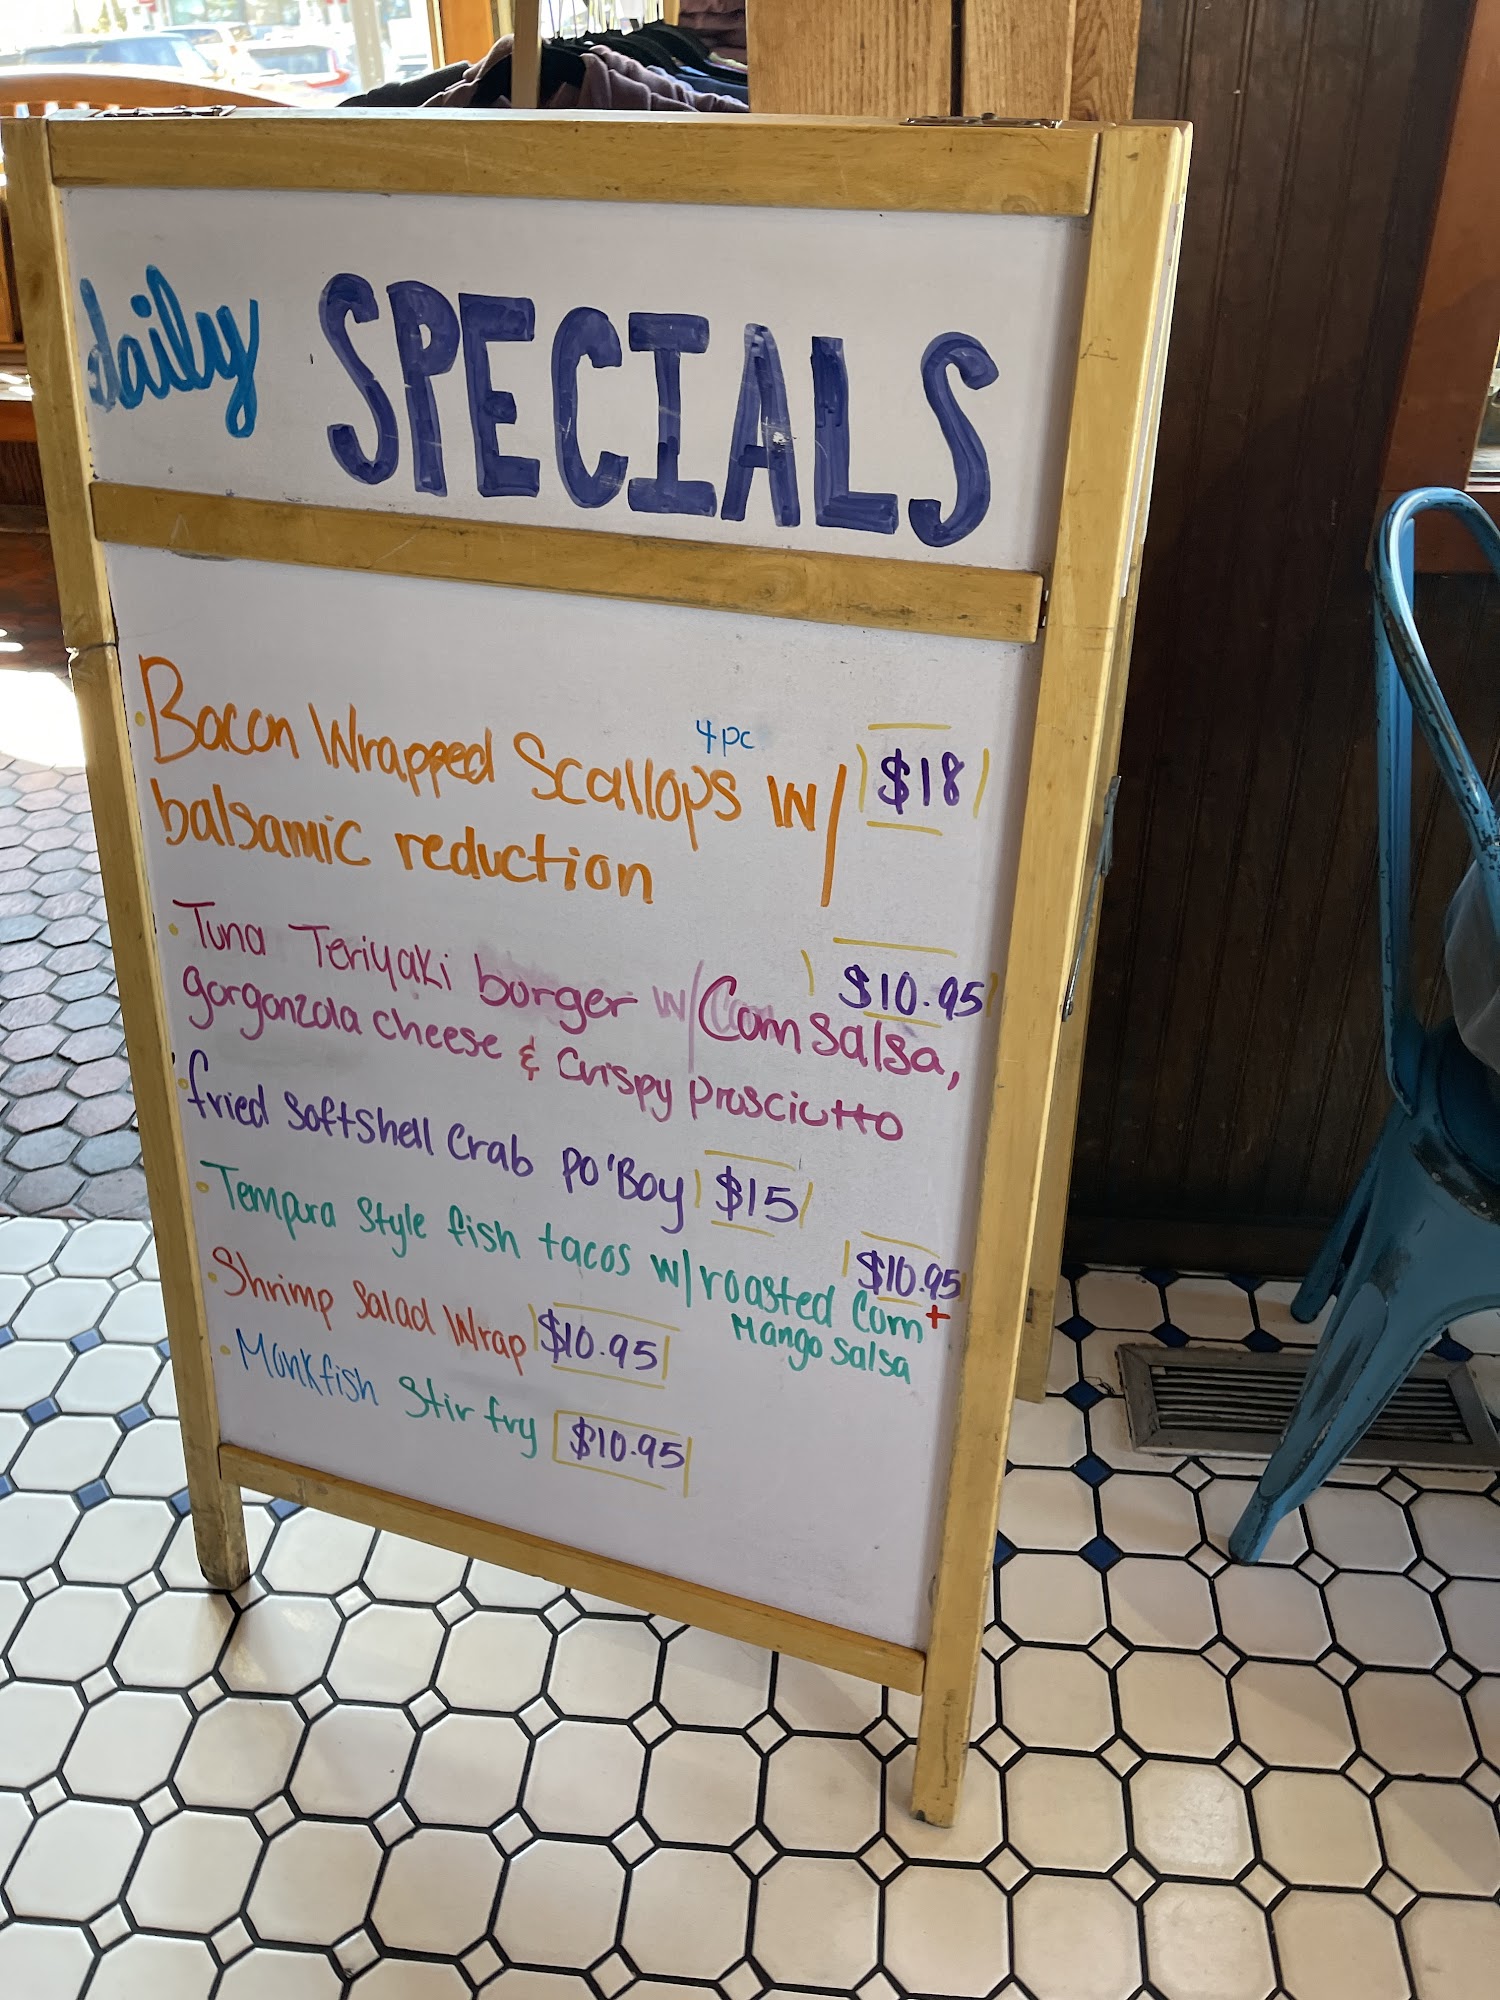 daily SPECIALS
Bacon Wrapped Scallops 4pc w/ $18
balsamic reduction
Tuna Teriyaki borger w/ Corn Salsa, $10.95
gorgonzola cheese & Crispy prosciutto
fried Softshell Crab Po'Boy $15
Tempura Style fish tacos w/ roasted Corn + $10.95
Mango Salsa
Shrimp Salad Wrap $10.95
Monkfish Stir fry $10.95